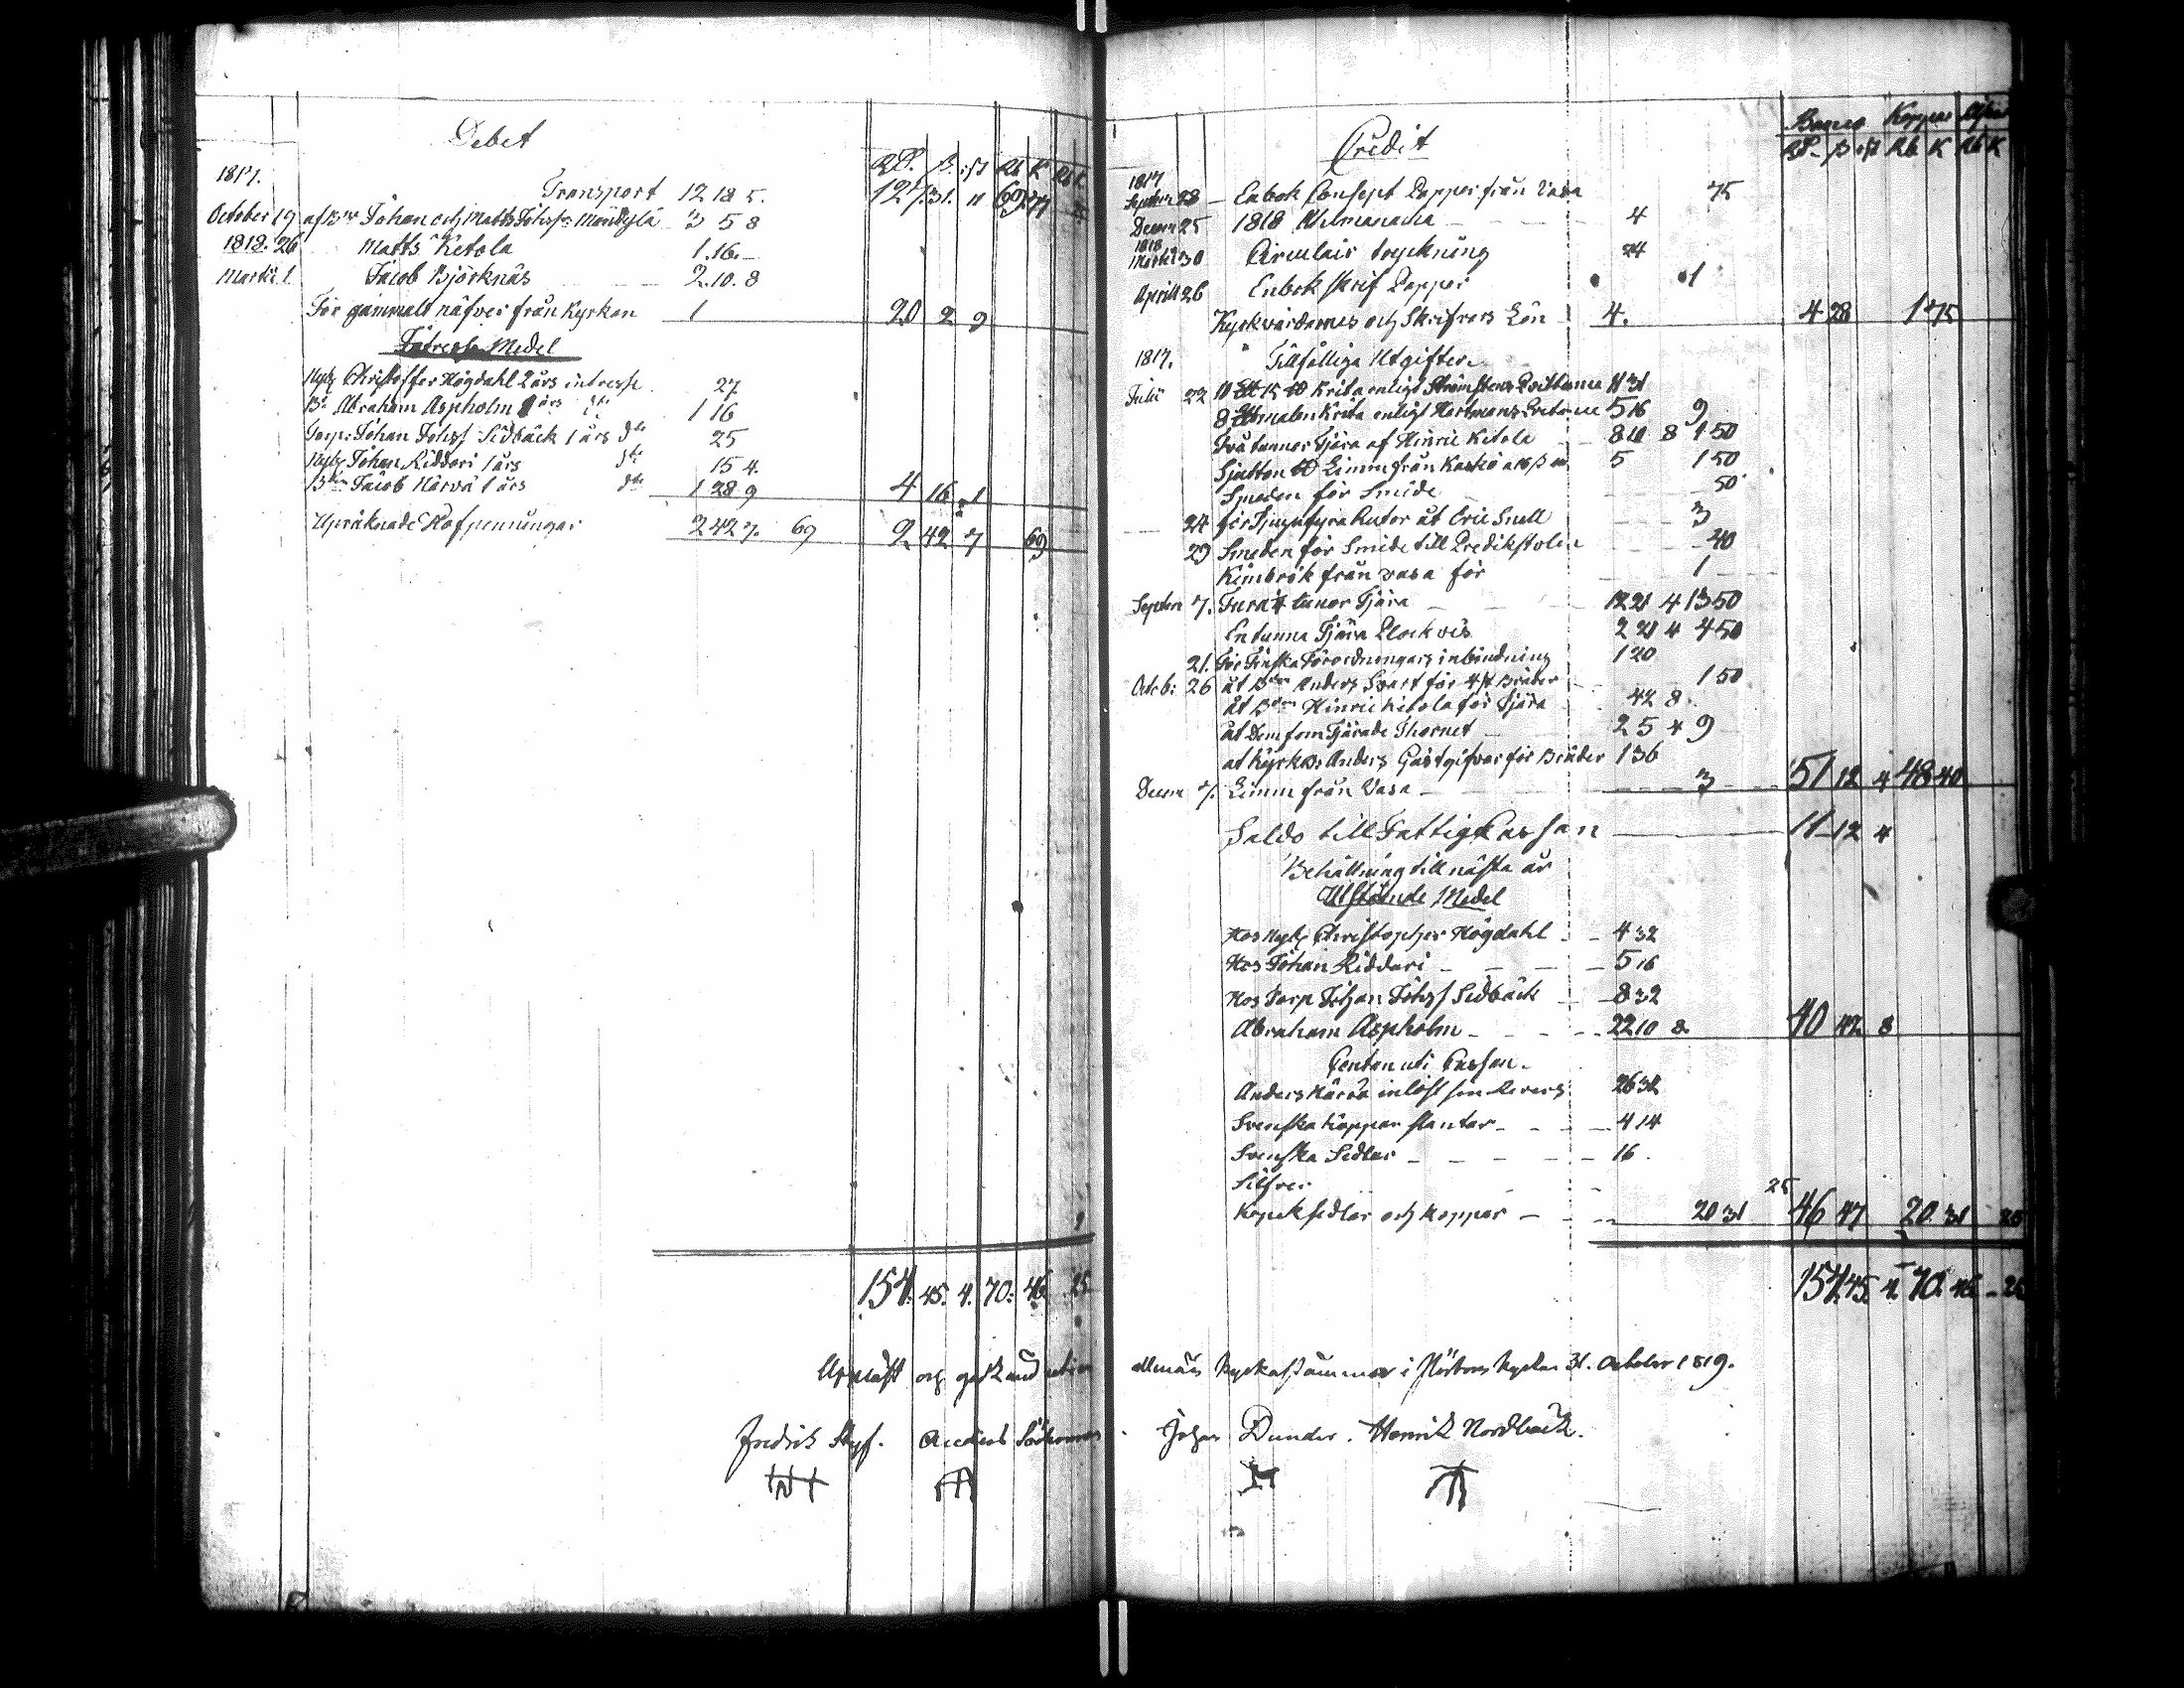 Debet
Rd. ß. rst Rb K Rb K
1817.
Transport 12 18 5. 127. 31. 11 69 77 25
October 19 af Bde Johan och Matts Johss: Mändylä 3 5 8
1818. 26 Matts Ketola 1.16.–
Martii 1 Jacob Björknäs 2.10.8
För gammalt näfver från Kyrkan 1 20 2 9
Intresse Medel
Christoffer Högdahl 2 års intresse 27
Bd Abraham Aspholm 1 års dto 1 16
Torp: Johan Johss Sidbäck 1 års dto 25
Johan Riddari 1 års dto 15 4.
Bdn Jacob Härvä 1 års dto 1 28 9 4 16 1
Upräknade Håfpenningar 2 42 7. 69 2 42 7 69
154. 45. 4. 70: 46 25
Fredrik Skyf. Anders
Credit
Banco Koppar Silfver
Rd. ß rst Rb K Rb K
1817
Septem 28 – En bok Consept Papper från Vasa 75
Decem 25 1818 Allmanacka 4
1818
Martii 30 Circulair tryckning 24
Aprill 26 En bok Skrif Papper 1
Kyrkvärdarnes och Skrifvars Lön 4. 4 28 1 75
1817. Tillfälliga Utgifter
Julii 22 10 15 Krita enligt Strömstens Qvittance 11 31
8 malen Krita enligt Hartmans Qvitance 5 16 9
Två tunnor Tjära af Hinric Ketola 8 10 8 1 50
Sjutton Limm från Kaskö a 16 ß 5 1 50
Smeden för Smide 50
24 för Tjugufyra Rutor åt Eric Snell 3
29 Smeden för Smide till Predikstolen 40
Kimbrök från Vasa för 1
Septem 7. Fyra tunor Tjära 12 21 4 13 50
En tunna Tjära Plockvis 2 21 4 4 50
21. För Finska Förordningars inbindning 1 20
Octob: 26 åt Bdn Anders Svart för Bräder 1 50
åt Bdn Hinric Ketola för Tjära 42 8.
åt Dem som Tjärade Thornet 2 5 4 9
at Kyrkv: Anders Gästgifvar för Bräder 1 36
Decem 7. Limm från Vasa 3 51 12 4 48 40
Saldo till Fattig Cassan 11 12 4
Behållning till nästa år
Utstående Medel
Hos Christopher Högdahl 4 32
Hos Johan Riddari 5 16
Hos Torp Johan Johss Sidbäck 8 32
Abraham Aspholm 22 10 8 40 42 8
Contan uti Cassan.
Anders Härvä inlöst sin Revers 26 32
Svenska Koppar slantar 4 14
Svenska Sedlar 16
Silfver 25
Kopek sedlar och koppar 20 31 46 47 20 31 25
154. 45. 4. 70. 46 – 25
Uppläst och godkänd uti en allmän Kyrkostämma i Kyrka 31. October 1819.
Johan Dunder. Henrik Nordbäck.